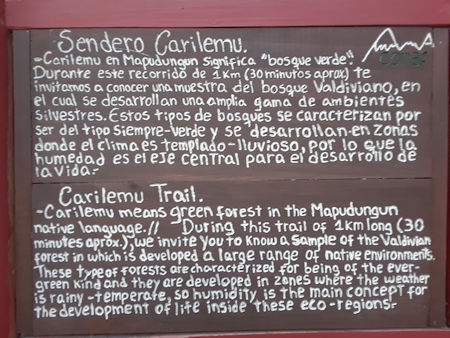 Sendero Carilemu.
conaf
-Carilemu en Mapudungun significa "bosque verde".
Durante este recorrido de 1Km (30 minutos aprox) te
invitamos a conocer una muestra del bosque Valdiviano, en
el cual se desarrollan una amplia gama de ambientes
silvestres. Estos tipos de bosques se caracterizan por
ser del tipo Siempre-Verde y se desarrollan en zonas
donde el clima es templado-lluvioso, por lo que la
humedad es el eje central para el desarrollo de
la vida.-
Carilemu Trail.
-Carilemu means green forest in the Mapudungun
native language.// During this trail of 1km long (30
minutes aprox.), we invite you to know a sample of the Valdivian
forest in which is developed a large range of native environments.
These type of forests are characterized for being of the ever-
green kind and they are developed in zones where the weather
is rainy-temperate, so humidity is the main concept for
the development of life inside these eco-regions.-